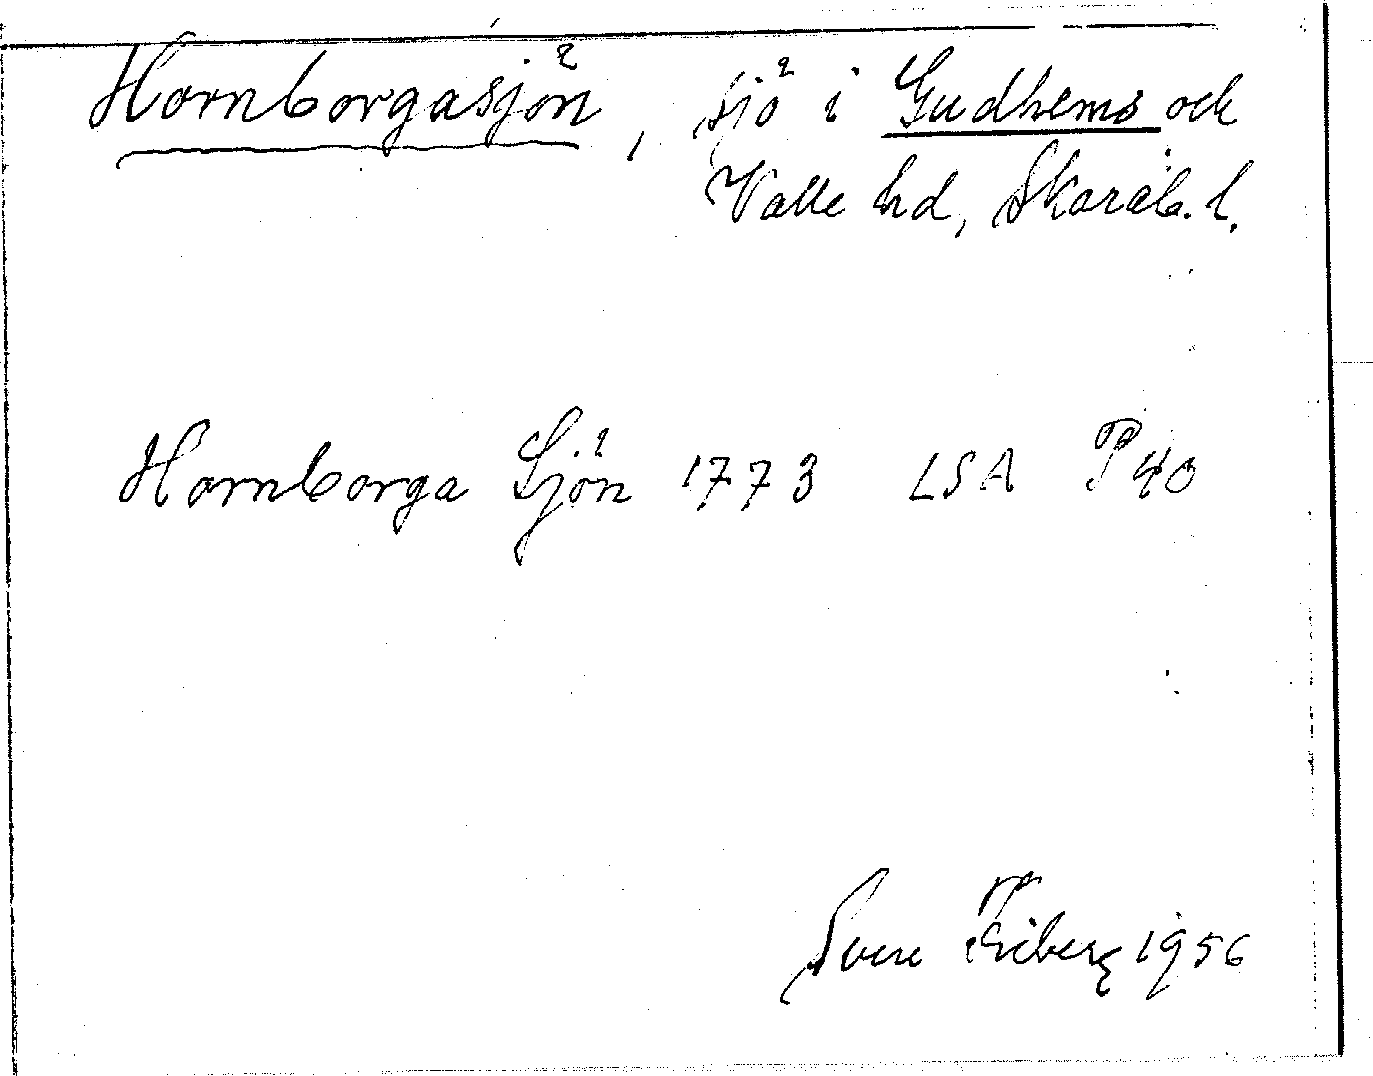 Hornborgasjön, sjö i Gudhems och
Valle hd, Skarab. l.
Hornborga Sjön 1773 LSA P40
Sven Friberg 1956